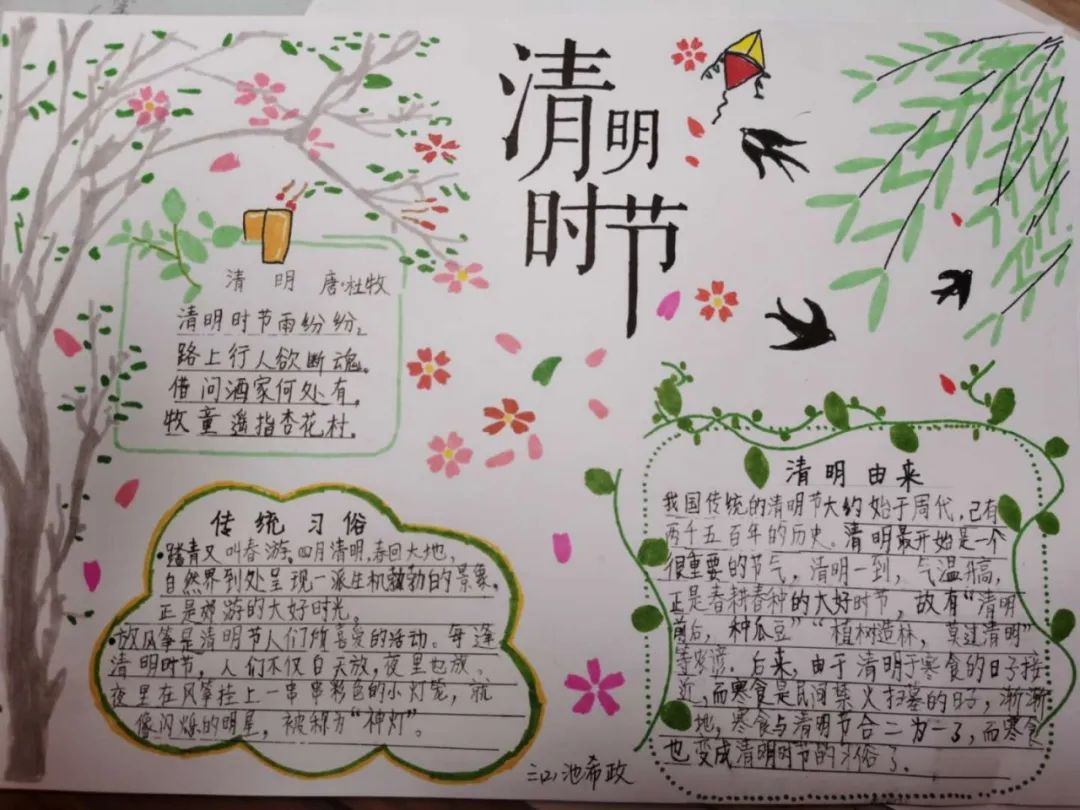 清明
时节
清 明 唐·杜牧
清明时节雨纷纷。
路上行人欲断魂。
借问酒家何处有,
牧童遥指杏花村。
传统习俗
·踏青又叫春游。四月清明,春回大地,
自然界到处呈现一派生机勃勃的景象。
正是郊游的大好时光。
·放风筝是清明节人们所喜爱的活动。每逢
清明时节,人们不仅白天放,夜里也放。
夜里在风筝挂上一串串彩色的小灯笼,就
像闪烁的明星,被称为“神灯”。
清明由来
我国传统的清明节大约始于周代,已有
两千五百年的历史。清明最开始是一个
很重要的节气,清明一到,气温升高,
正是春耕春种的大好时节,故有“清明
前后,种瓜豆”“植树造林,莫过清明”
等农谚。后来,由于清明于寒食的日子接
近,而寒食是民间禁火扫墓的日子,渐渐
地,寒食与清明节合二为一了,而寒食
也变成清明时节的习俗了.
池希政